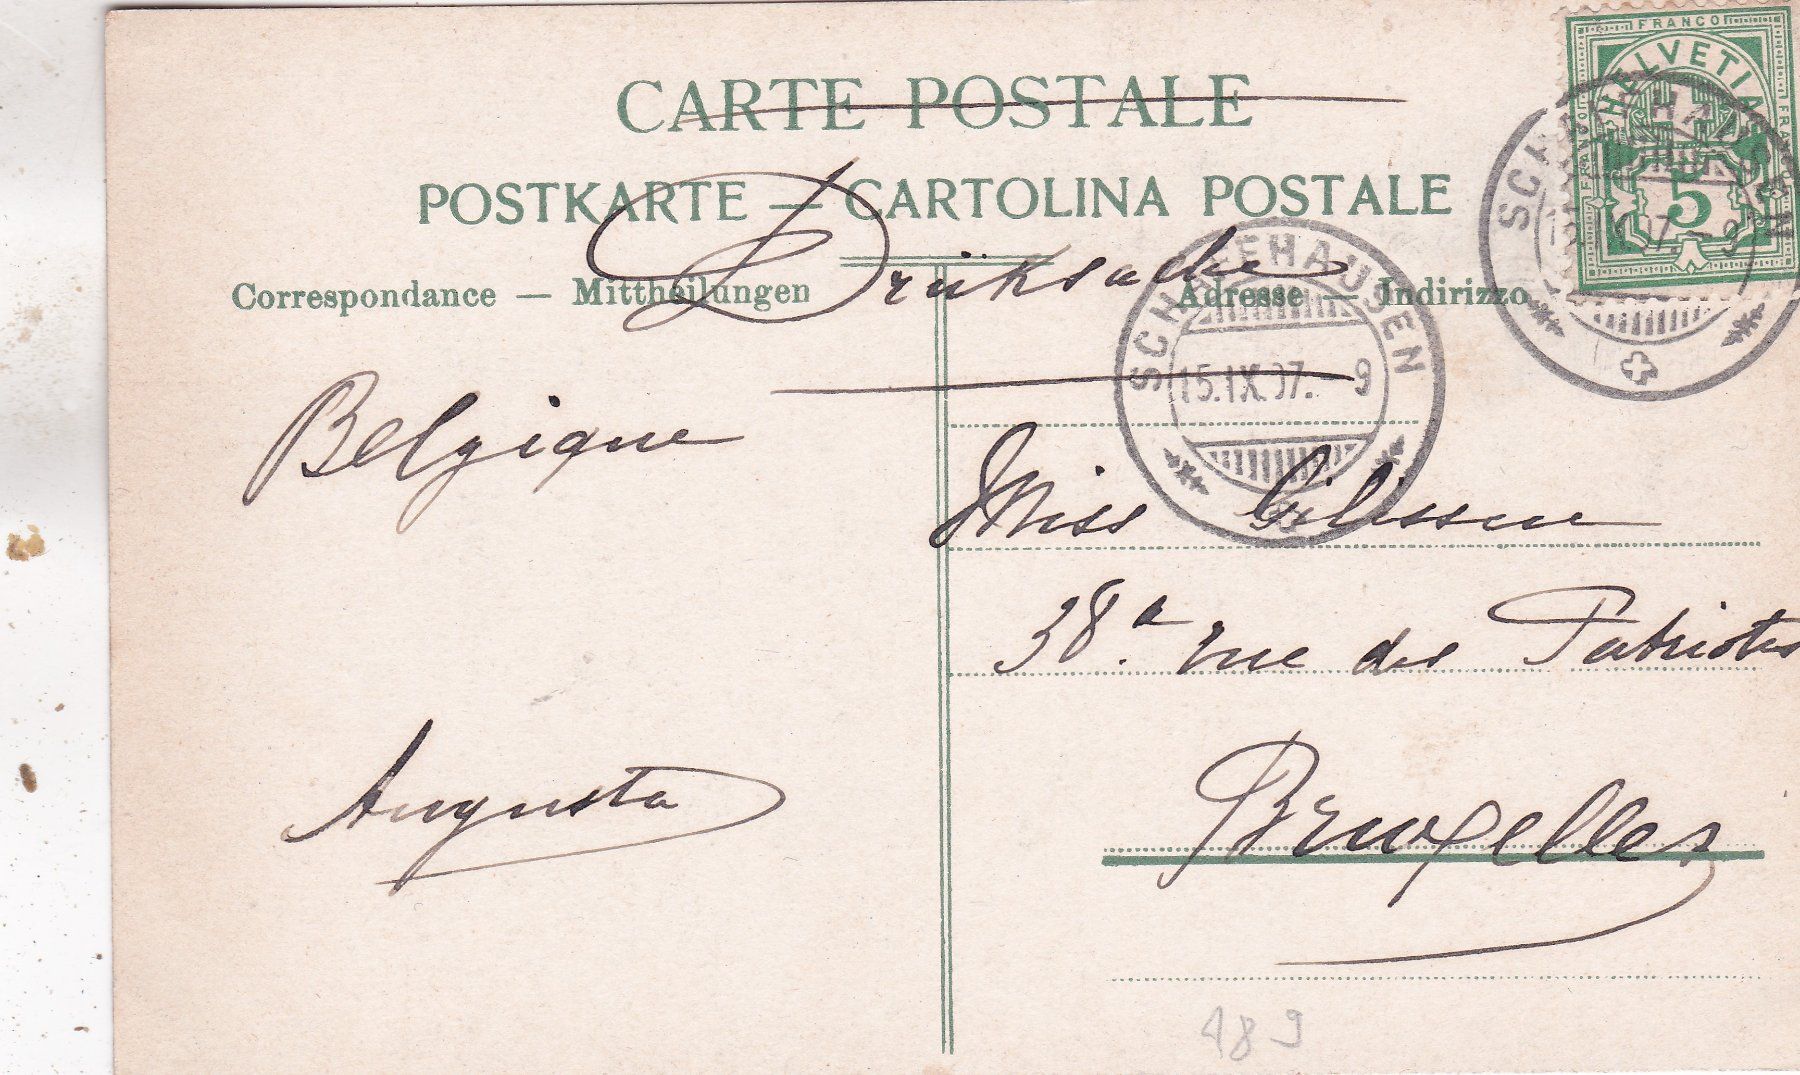 CARTE POSTALE
POSTKARTE — CARTOLINA POSTALE
Correspondance — Mittheilungen
Adresse — Indirizzo
Drüksache
Belgique
Augusta
Miss Gilissen
38a. rue des Patriotes
Bruxelles
FRANCO
HELVETIA
FRANCO
FRANCO
5
SCHAFFHAUSEN
SCHAFFHAUSEN
15.IX.07. – 9
489